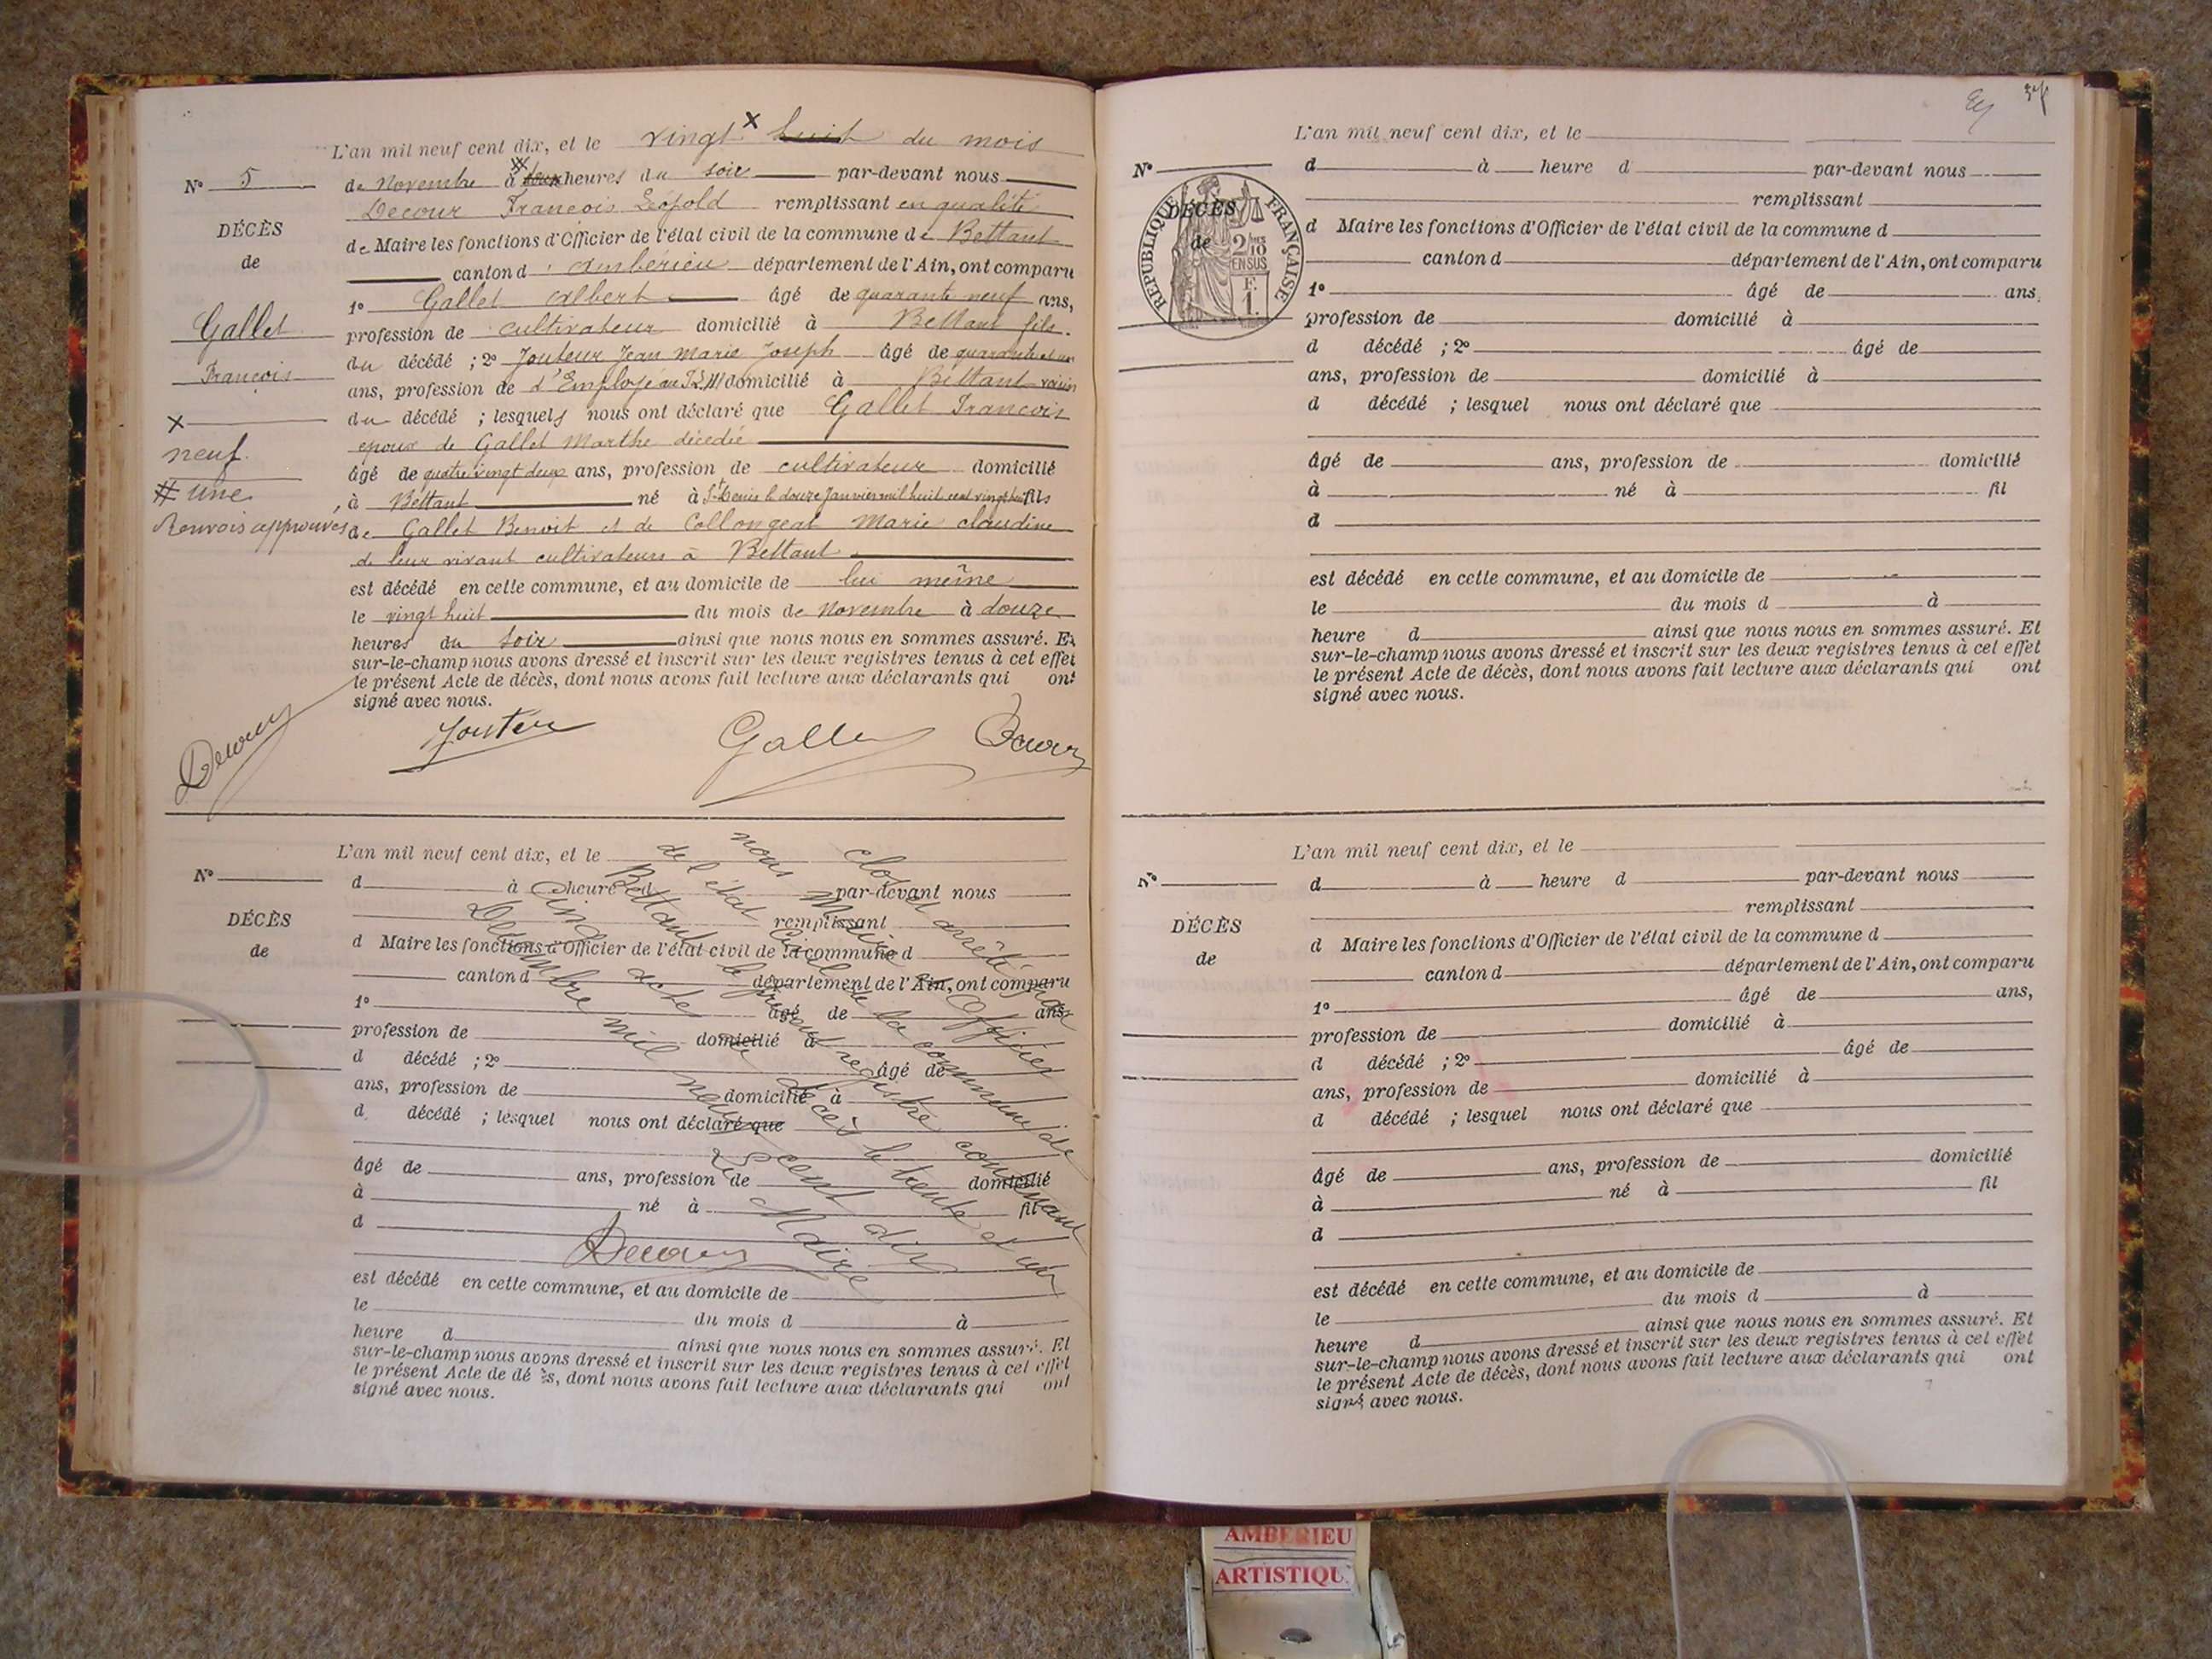 L'an mil neuf cent dix, et le vingt × huit du mois
N° 5
de Novembre à deux heures du soir par-devant nous
Decour François Léopold remplissant en qualité
DÉCÈS
de Maire les fonctions d'Officier de l'état civil de la commune de Bettant
de
canton d'Ambérieu département de l'Ain, ont comparu
1° Gallet Albert âgé de quarante neuf ans,
Gallet
profession de cultivateur domicilié à Bettant fils
du décédé ; 2° Jouteur Jean Marie Joseph âgé de quarante et un
François
ans, profession de d'Employé au domicilié à Bettant voisin
×
du décédé ; lesquels nous ont déclaré que Gallet François
neuf.
epoux de Gallet Marthe décédée
âgé de quatre vingt deux ans, profession de cultivateur domicilié
# une
à Bettant né à St Denis le douze Janvier mil huit cent vingt huit fils
Renvois approuvés
de Gallet Benoit et de Collongeat Marie claudine
de leur vivant cultivateurs à Bettant
est décédé en cette commune, et au domicile de lui même
le vingt huit du mois de Novembre à douze
heures du soir ainsi que nous nous en sommes assuré. Et
sur-le-champ nous avons dressé et inscrit sur les deux registres tenus à cet effet
le présent Acte de décès, dont nous avons fait lecture aux déclarants qui ont
signé avec nous.
Decour Gallet Decour
L'an mil neuf cent dix, et le
N°
d à heure d par-devant nous
remplissant
DÉCÈS
d Maire les fonctions d'Officier de l'état civil de la commune d
de
canton d département de l'Ain, ont comparu
1° âgé de ans
profession de domicilié à
d décédé ; 2° âgé de
ans, profession de domicilié à
d décédé ; lesquel nous ont déclaré que
âgé de ans, profession de domicilié
à né à fil
d
est décédé en cette commune, et au domicile de
le du mois d à
heure d ainsi que nous nous en sommes assuré. Et
sur-le-champ nous avons dressé et inscrit sur les deux registres tenus à cet effet
le présent Acte de décès, dont nous avons fait lecture aux déclarants qui ont
signé avec nous.
clos et arrêté par
nous Maire Officier
de l'état civil de la commune de
Bettant le présent registre contenant
Cinq actes de décès le trente et un
Décembre mil neuf cent dix
Le Maire
Decour
L'an mil neuf cent dix, et le
N°
d à heure d par-devant nous
remplissant
DÉCÈS
d Maire les fonctions d'Officier de l'état civil de la commune d
de
canton d département de l'Ain, ont comparu
1° âgé de ans,
profession de domicilié à
d décédé ; 2° âgé de
ans, profession de domicilié à
d décédé ; lesquel nous ont déclaré que
âgé de ans, profession de domicilié
à né à fil
d
est décédé en cette commune, et au domicile de
le du mois d à
heure d ainsi que nous nous en sommes assuré. Et
sur-le-champ nous avons dressé et inscrit sur les deux registres tenus à cet effet
le présent Acte de décès, dont nous avons fait lecture aux déclarants qui ont
signé avec nous.
RÉPUBLIQUE FRANÇAISE
2/10
EN SUS
F.
1.
L'an mil neuf cent dix, et le
N°
d à heure d par-devant nous
remplissant
DÉCÈS
d Maire les fonctions d'Officier de l'état civil de la commune d
de
canton d département de l'Ain, ont comparu
1° âgé de ans,
profession de domicilié à
d décédé ; 2° âgé de
ans, profession de domicilié à
d décédé ; lesquel nous ont déclaré que
âgé de ans, profession de domicilié
à né à fil
d
est décédé en cette commune, et au domicile de
le du mois d à
heure d ainsi que nous nous en sommes assuré. Et
sur-le-champ nous avons dressé et inscrit sur les deux registres tenus à cet effet
le présent Acte de décès, dont nous avons fait lecture aux déclarants qui ont
signé avec nous.
AMBERIEU
ARTISTIQU